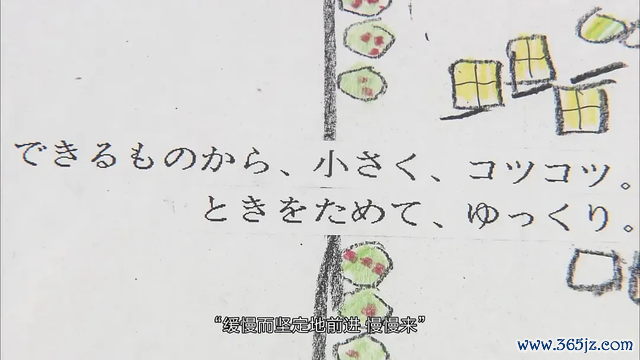 できるものから、小さく、コツコツ。
ときをためて、ゆっくり。
“缓慢而坚定地前进 慢慢来”
www.365jz.com